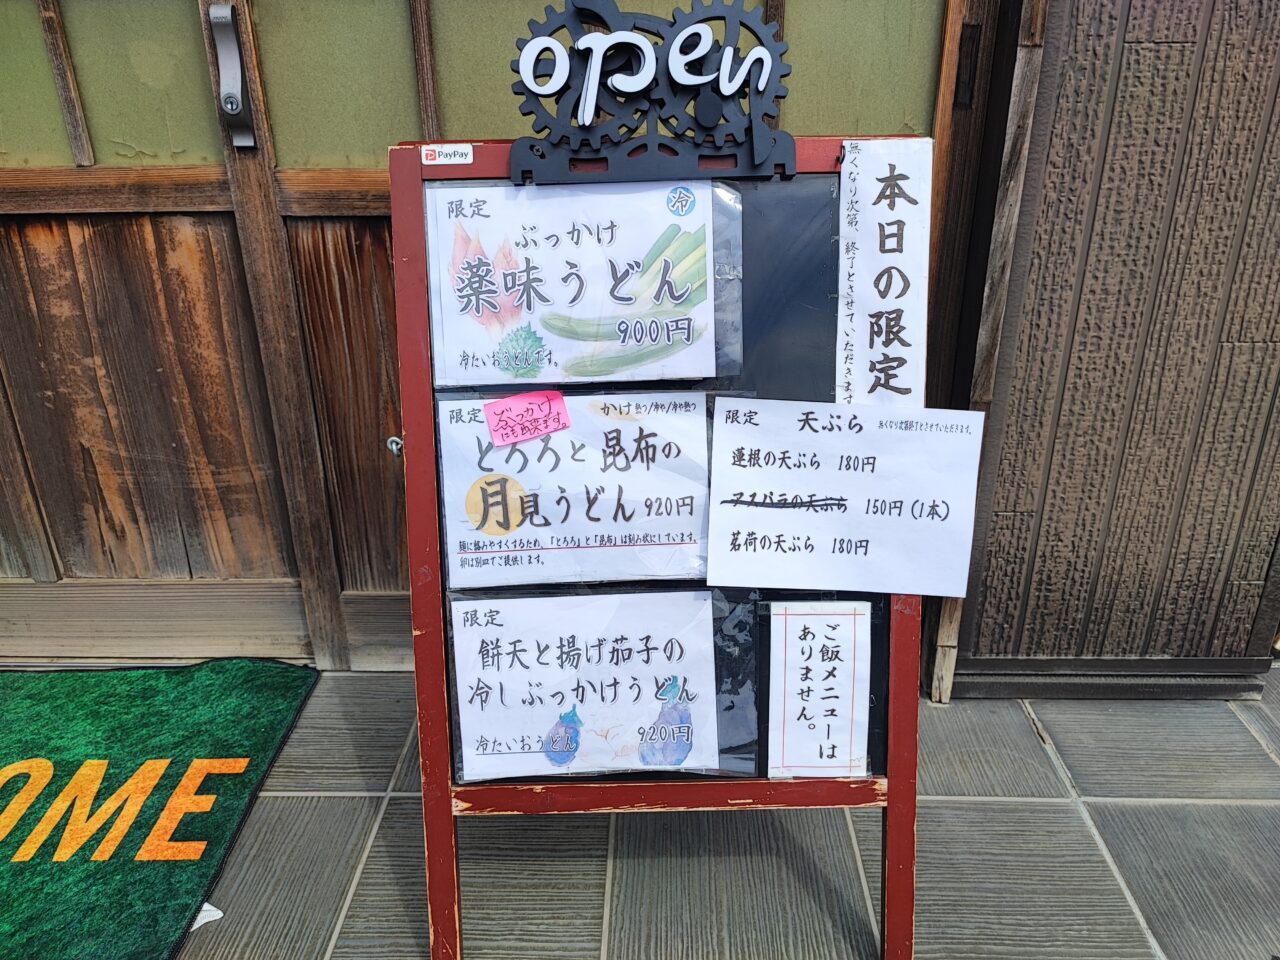 open
PayPay
本日の限定
無くなり次第、終了とさせていただきます
限定
冷
ぶっかけ
薬味うどん
900円
冷たいおうどんです。
限定
ぶっかけ
にも出来ます。
かけ 熱つ/冷や/冷や熱つ
とろろと昆布の
月見うどん 920円
麺に絡みやすくするため、「とろろ」と「昆布」は刻み状にしています。
卵は別皿でご提供します。
限定 天ぷら 無くなり次第終了とさせていただきます。
蓮根の天ぷら 180円
アスパラの天ぷら 150円(1本)
茗荷の天ぷら 180円
限定
餅天と揚げ茄子の
冷しぶっかけうどん
920円
冷たいおうどん
ご飯メニューは
ありません。
OME